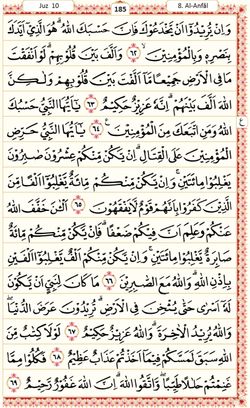 Juz 10
185
8. Al-Anfâl
وَاِنْ يُّرِيْدُوْٓا اَنْ يَّخْدَعُوْكَ فَاِنَّ حَسْبَكَ اللّٰهُ ۗهُوَ الَّذِيْٓ اَيَّدَكَ
بِنَصْرِهٖ وَبِالْمُؤْمِنِيْنَۙ ٦٢ وَاَلَّفَ بَيْنَ قُلُوْبِهِمْۗ لَوْ اَنْفَقْتَ
مَا فِى الْاَرْضِ جَمِيْعًا مَّآ اَلَّفْتَ بَيْنَ قُلُوْبِهِمْ وَلٰكِنَّ
اللّٰهَ اَلَّفَ بَيْنَهُمْۗ اِنَّهٗ عَزِيْزٌ حَكِيْمٌ ٦٣ يٰٓاَيُّهَا النَّبِيُّ حَسْبُكَ
اللّٰهُ وَمَنِ اتَّبَعَكَ مِنَ الْمُؤْمِنِيْنَ ٦٤ يٰٓاَيُّهَا النَّبِيُّ حَرِّضِ
الْمُؤْمِنِيْنَ عَلَى الْقِتَالِۗ اِنْ يَّكُنْ مِّنْكُمْ عِشْرُوْنَ صَابِرُوْنَ
يَغْلِبُوْا مِائَتَيْنِۚ وَاِنْ يَّكُنْ مِّنْكُمْ مِّائَةٌ يَّغْلِبُوْٓا اَلْفًا مِّنَ
الَّذِيْنَ كَفَرُوْا بِاَنَّهُمْ قَوْمٌ لَّا يَفْقَهُوْنَ ٦٥ اَلْـٰٔنَ خَفَّفَ اللّٰهُ
عَنْكُمْ وَعَلِمَ اَنَّ فِيْكُمْ ضَعْفًاۗ فَاِنْ يَّكُنْ مِّنْكُمْ مِّائَةٌ
صَابِرَةٌ يَّغْلِبُوْا مِائَتَيْنِۚ وَاِنْ يَّكُنْ مِّنْكُمْ اَلْفٌ يَّغْلِبُوْٓا اَلْفَيْنِ
بِاِذْنِ اللّٰهِۗ وَاللّٰهُ مَعَ الصّٰبِرِيْنَ ٦٦ مَا كَانَ لِنَبِيٍّ اَنْ يَّكُوْنَ
لَهٗٓ اَسْرٰى حَتّٰى يُثْخِنَ فِى الْاَرْضِۗ تُرِيْدُوْنَ عَرَضَ الدُّنْيَاۖ
وَاللّٰهُ يُرِيْدُ الْاٰخِرَةَۗ وَاللّٰهُ عَزِيْزٌ حَكِيْمٌ ٦٧ لَوْلَا كِتٰبٌ مِّنَ
اللّٰهِ سَبَقَ لَمَسَّكُمْ فِيْمَآ اَخَذْتُمْ عَذَابٌ عَظِيْمٌ ٦٨ فَكُلُوْا مِمَّا
غَنِمْتُمْ حَلٰلًا طَيِّبًاۖ وَّاتَّقُوا اللّٰهَۗ اِنَّ اللّٰهَ غَفُوْرٌ رَّحِيْمٌ ٦٩